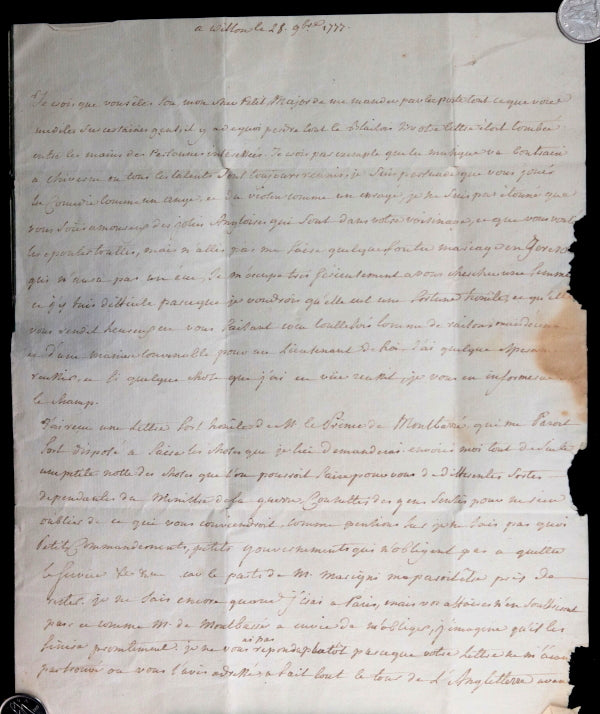 a Wilton le 28. 9bre 1777.
Je crois que vous êtes fou, mon cher Petit Major de me mander par la poste tout ce que vous
me dites sur certaines gens, il y a de quoi perdre tout le si votre lettre étoit tombée
entre les mains des Personnes intéressées. Je vois par exemple que la musique va
a ou tous les talents sont toujours réunis, je suis persuadé que vous jouez
la Comédie comme un ange, et du violon comme un enragé, je ne suis pas étonné que
vous soiés amoureux des jolies Angloises qui sont dans votre voisinage, et que vous
les épouser toutes, mais n'allez pas me faire quelque mariage en
qui n'aura pas un écu, Je m'occupe très sérieusement a vous chercher une femme
ce qui fait difficile parceque je voudrois qu'elle eut une fortune honnête, et qu'elle
vous rendit heureux en vous faisant cocu toutte fois comme de raison
et d'une manière convenable pour un Lieutenant de Roi. J'ai quelque
réussir, et si quelque chose que j'ai en vüe reussit, je vous en informerai
le champ.
J'ai reçu une Lettre fort honête de M. le Prince de Montbarré, qui me Paroit
fort disposé a faire les choses que je lui demanderai. envoiés moi tout de suite
une petite notte des choses que l'on pourroit faire pour vous de differentes sortes
dependantes du Ministre de la guerre, Consultés des gens sensés pour ne rien
oublier de ce qui vous conviendroit, comme pentions sur je ne sais pas quoi
Petits Commandements, petits gouvernements qui n'obligent pas a quitter
le service &c &c car le parti de M. Marigni me paroit être pris de
rester. je ne sais encore quand j'irai a Paris, mais vos affaires n'en souffriront
pas, et comme M. de Montbarré a envie de m'obliger, j'imagine qu'il les
finira promtement. je ne vous ai pas répondu plutôt parceque votre lettre ne m'aiant
pas trouvé ou vous l'aviés adressée a fait tout le tour de L'Angleterre avant